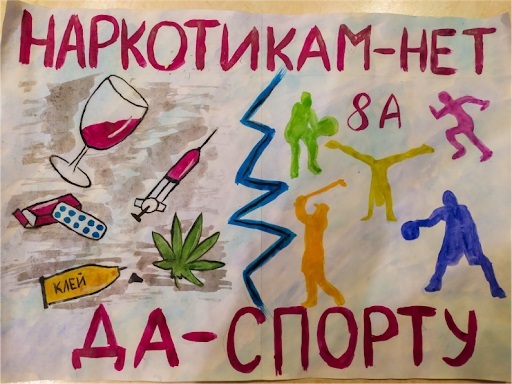 НАРКОТИКАМ-НЕТ
8А
КЛЕЙ
ДА-СПОРТУ